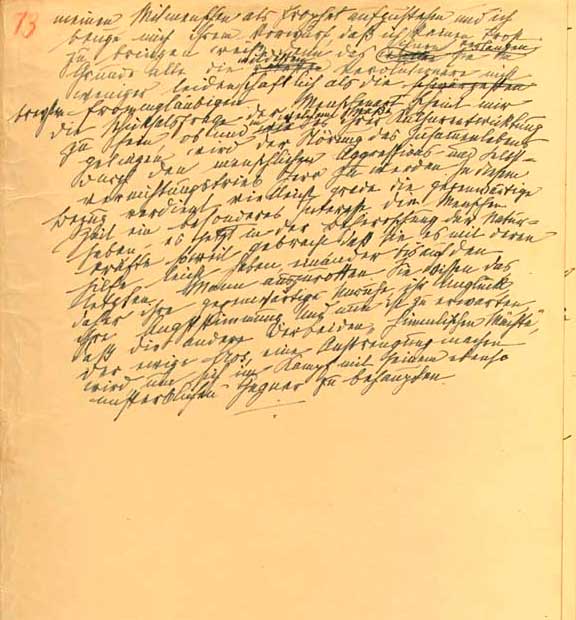 73
meinen Mitmenschen als Prophet aufzustehen und ich
beuge mich ihrem Vorwurf daß ich keinen Trost
zu bringen weiß, denn das verlangen sie im
Grunde alle die wildesten Revolutionäre nicht
weniger leidenschaftlich als die
bravsten Frommgläubigen
Die Schicksalsfrage der Menschenart scheint mir
zu sein, ob und in welchem Maße der Kulturentwicklung
gelingen wird der Störung des Zusammenlebens
durch den menschlichen Aggressions und Selbst-
vernichtungstrieb Herr zu werden. In diesem
Bezug verdient vielleicht grade die gegenwärtige
Zeit ein besonderes Interesse. Die Menschen
haben es jetzt in der Beherrschung der Natur-
kräfte soweit gebracht daß sie es mit deren
Hilfe leicht haben, einander bis auf den
letzten Mann auszurotten. Sie wissen das
daher ihre gegenwärtige Unruhe, ihr Unglück
ihre Angststimmung. Und nun ist zu erwarten,
daß die andere der beiden „himmlischen Mächte",
der ewige Eros, eine Anstrengung machen
wird um sich im Kampf mit seinem ebenso
unsterblichen Gegner zu behaupten.